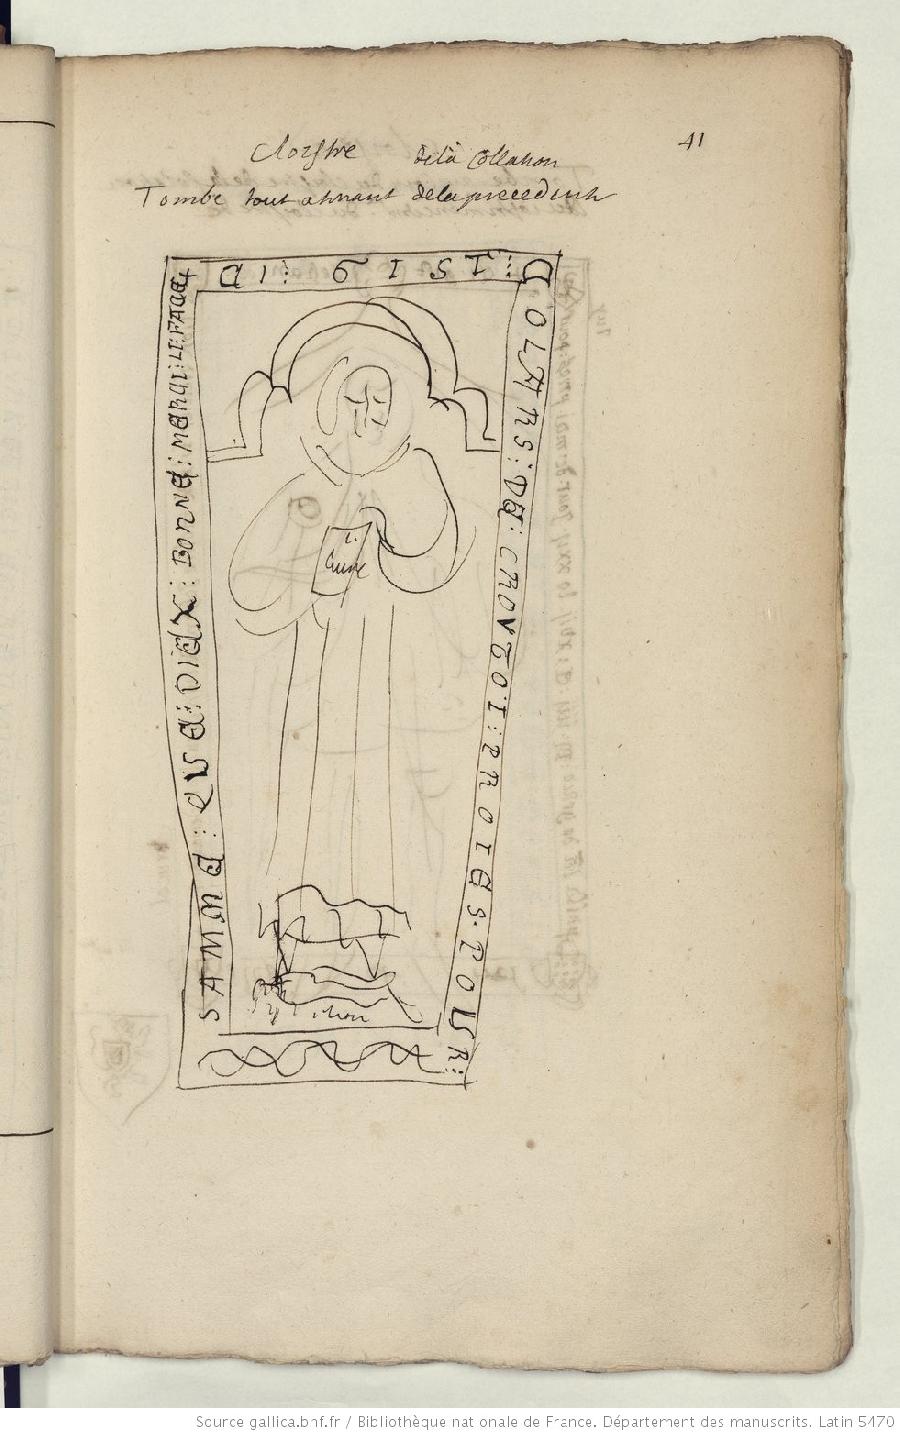 41
Cloistre de la Collation
Tombe tout atenant de la precedente
CI : GIST :
COLARS : DE : CROVTOI : PROIES : POUR :
SAMME : QVE : DIEX : BONNE : MERCI : LI FACE
Livre
Source gallica.bnf.fr / Bibliothèque nationale de France. Département des manuscrits. Latin 5470